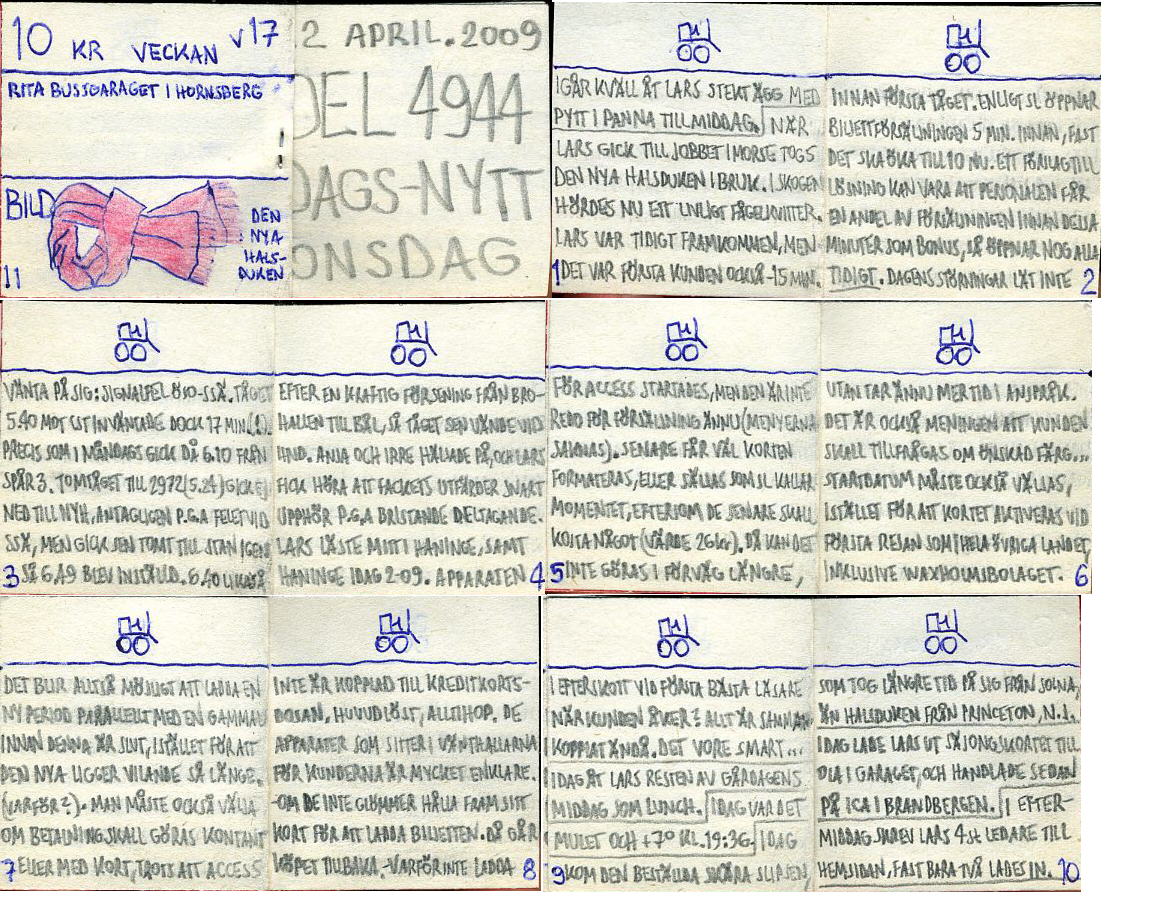 10 KR VECKAN V17
RITA BUSSGARAGET I HORNSBERG
BILD
DEN
NYA
HALS-
DUKEN
11
2 APRIL. 2009
DEL 4944
DAGS-NYTT
ONSDAG
IGÅR KVÄLL ÅT LARS STEKT ÄGG MED
PYTT I PANNA TILL MIDDAG. NÄR
LARS GICK TILL JOBBET I MORSE TOGS
DEN NYA HALSDUKEN I BRUK. I SKOGEN
HÖRDES NU ETT LIVLIGT FÅGELKVITTER.
LARS VAR TIDIGT FRAMKOMMEN, MEN
DET VAR FÖRSTA KUNDEN OCKSÅ -15 MIN.
1
INNAN FÖRSTA TÅGET. ENLIGT SL ÖPPNAR
BILJETTFÖRSÄLJNINGEN 5 MIN. INNAN, FAST
DET SKA ÖKA TILL 10 NU. ETT FÖRSLAG TILL
LÖSNING KAN VARA ATT PERSONALEN FÅR
EN ANDEL AV FÖRSÄLJNINGEN INNAN DESSA
MINUTER SOM BONUS, SÅ ÖPPNAR NOG ALLA
TIDIGT. DAGENS STÖRNINGAR LÄT INTE
2
VÄNTA PÅ SIG: SIGNALFEL ÖSO-SSÄ. TÅGET
5.40 MOT VST INVÄNTADE DOCK 17 MIN.(!).
PRECIS SOM I MÅNDAGS GICK DÅ 6.10 FRÅN
SPÅR 3. TOMTÅGET TILL 2972 (5.24) GICK EJ
NED TILL NYH, ANTAGLIGEN P.G.A FELET VID
SSÄ, MEN GICK SEN TOMT TILL STAN IGEN,
SÅ 6.49 BLEV INSTÄLLD. 6.40 LIKASÅ
3
EFTER EN KRAFTIG FÖRSENING FRÅN BRO-
HALLEN TILL BÅL, SÅ TÅGET SEN VÄNDE VID
HND. ANJA OCH IRRE HÄLSADE PÅ, OCH LARS
FICK HÖRA ATT FACKETS UTFÄRDER SNART
UPPHÖR P.G.A BRISTANDE DELTAGANDE.
LARS LÄSTE MITT I HANINGE, SAMT
HANINGE IDAG 2-09. APPARATEN
4
FÖR ACCESS STARTADES, MEN DEN ÄR INTE
REDO FÖR FÖRSÄLJNING ÄNNU (MENYERNA
SAKNAS). SENARE FÅR VÄL KORTEN
FORMATERAS, ELLER SÄLJAS SOM SL KALLAR
MOMENTET, EFTERSOM DE SENARE SKALL
KOSTA NÅGOT (VÄRDE 26 kr). DÅ KAN DET
INTE GÖRAS I FÖRVÄG LÄNGRE,
5
UTAN TAR ÄNNU MER TID I ANSPRÅK.
DET ÄR OCKSÅ MENINGEN ATT KUNDEN
SKALL TILLFRÅGAS OM ÖNSKAD FÄRG...
STARTDATUM MÅSTE OCKSÅ VÄLJAS,
ISTÄLLET FÖR ATT KORTET AKTIVERAS VID
FÖRSTA RESAN SOM I HELA ÖVRIGA LANDET,
INKLUSIVE WAXHOLMSBOLAGET.
6
DET BLIR ALLTSÅ MÖJLIGT ATT LADDA EN
NY PERIOD PARALLELLT MED EN GAMMAL
INNAN DENNA ÄR SLUT, ISTÄLLET FÖR ATT
DEN NYA LIGGER VILANDE SÅ LÄNGE.
(VARFÖR?). MAN MÅSTE OCKSÅ VÄLJA
OM BETALNING SKALL GÖRAS KONTANT
ELLER MED KORT, TROTS ATT ACCESS
7
INTE ÄR KOPPLAD TILL KREDITKORTS-
DOSAN, HUVUDLÖST, ALLTIHOP. DE
APPARATER SOM SITTER I VÄNTHALLARNA
FÖR KUNDERNA ÄR MYCKET ENKLARE.
-OM DE INTE GLÖMMER HÅLLA FRAM SITT
KORT FÖR ATT LADDA BILJETTEN. DÅ GÅR
KÖPET TILLBAKA.-VARFÖR INTE LADDA
8
I EFTERSKOTT VID FÖRSTA BÄSTA LÄSARE
NÄR KUNDEN ÅKER? ALLT ÄR SAMMAN-
KOPPLAT ÄNDÅ. DET VORE SMART...
IDAG ÅT LARS RESTEN AV GÅRDAGENS
MIDDAG SOM LUNCH. IDAG VAR DET
MULET OCH +7° KL.19:36. IDAG
KOM DEN BESTÄLLDA SKÄRA SLIPSEN,
9
SOM TOG LÄNGRE TID PÅ SIG FRÅN SOLNA,
ÄN HALSDUKEN FRÅN PRINCETON, N.J..
IDAG LADE LARS UT SÄSONGSKORTET TILL
OLA I GARAGET, OCH HANDLADE SEDAN
PÅ ICA I BRANDBERGEN. I EFTER-
MIDDAG SKREV LARS 4 st LEDARE TILL
HEMSIDAN, FAST BARA TVÅ LADES IN.
10